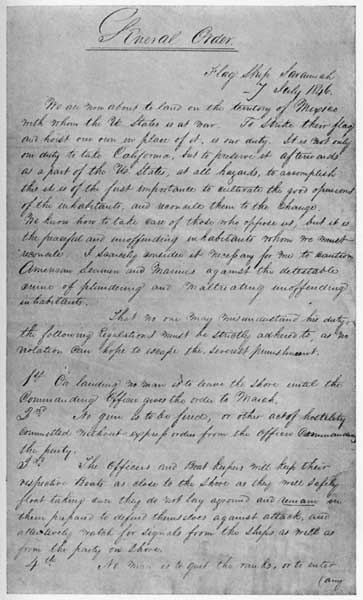 General Order.
Flag Ship Savannah
7 July 1846.
We are now about to land on the territory of Mexico
with whom the U. States is at war. To strike their flag
and hoist our own in place of it, is our duty. It is not only
our duty to take California, but to preserve it afterwards
as a part of the U. States, at all hazards, to accomplish
this it is of the first importance to cultivate the good opinions
of the inhabitants, and reconcile them to the change.
We know how to take care of those who oppose us, but it is
the peaceful and unoffending inhabitants whom we must
reconcile. I scarcely consider it necessary for me to caution
American Seamen and Marines against the detestable
crime of plundering and maltreating unoffending
inhabitants.
That no one may misunderstand his duty,
the following Regulations must be strictly adhered to, as no
violation can hope to escape the severest punishment.
1st On landing no man is to leave the shore until the
Commanding Officer gives the order to March,
2nd No gun is to be fired, or other act of hostility
committed without express orders from the Officer Commanding
the party.
3rd The Officers and Boat keepers will keep their
respective Boats as close to the shore as they will safely
float taking care they do not lay aground and remain in
them prepared to defend themselves against attack, and
attentively watch for signals from the ships as well as
from the party on shore.
4th No man is to quit the ranks, or to enter
(any